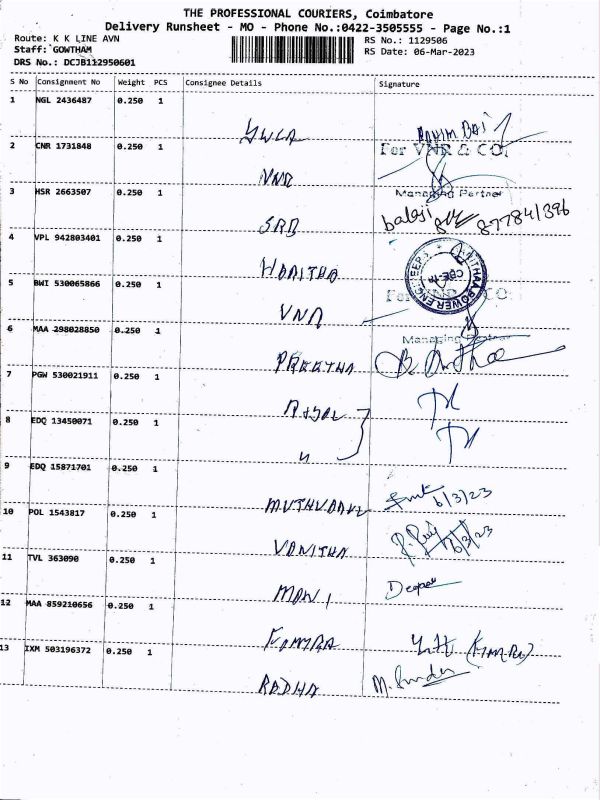 THE PROFESSIONAL COURIERS, Coimbatore
Delivery Runsheet - MO - Phone No.:0422-3505555 - Page No.:1
Route: K K LINE AVN
RS No.: 1129506
Staff: GOWTHAM
RS Date: 06-Mar-2023
DRS No.: DCJB112950601
S No Consignment No Weight PCS Consignee Details Signature
1 NGL 2436487 0.250 1
YWCA
2 CNR 1731848 0.250 1 For VNR & CO.
VNR
3 HSR 2663507 0.250 1 Managing Partner
SRB balaji 877841396
4 VPL 942803401 0.250 1
HARITHA
5 BWI 530065866 0.250 1 For VNR & CO
VNR
6 MAA 298028850 0.250 1 Managing Partner
PREETHA
7 PGW 530021911 0.250 1
8 EDQ 13450071 0.250 1
9 EDQ 15871701 0.250 1
6/3/23
10 POL 1543817 0.250 1
VANITHA 6/3/23
11 TVL 363090 0.250 1
MANI Deepa
12 MAA 859210656 0.250 1
13 IXM 503196372 0.250 1
RADHA